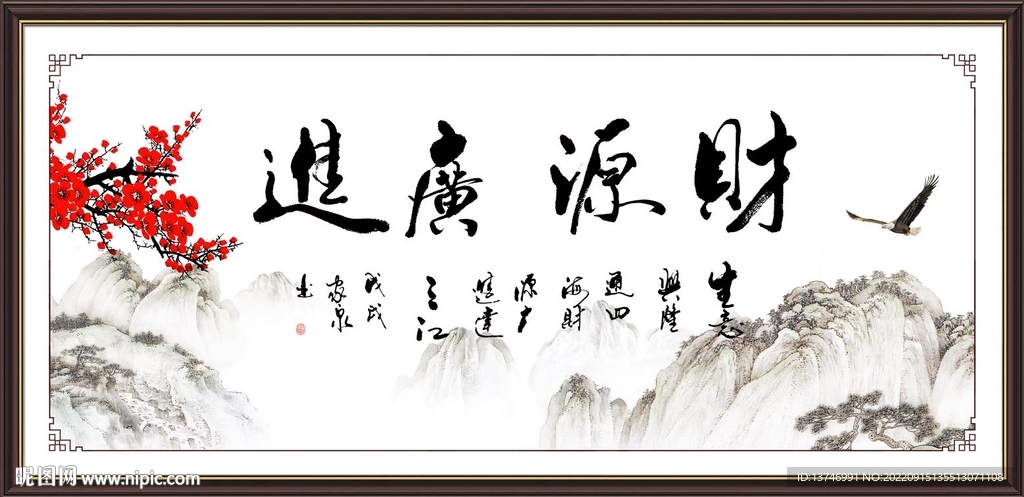 財源廣進
生意
興隆
通四
海財
源廣
進達
三江
戊戌
家泉
书
昵图网 www.nipic.com
ID:13746991 NO:20220915135513071108